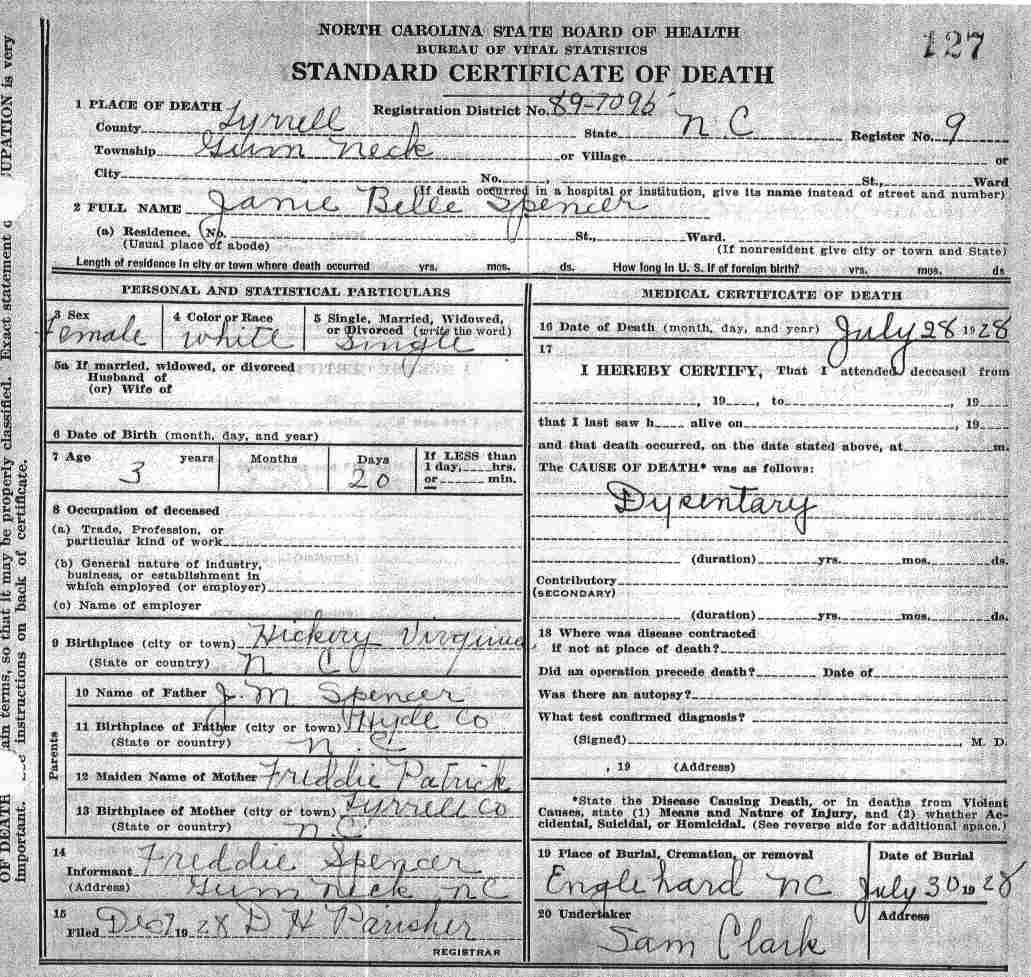 NORTH CAROLINA STATE BOARD OF HEALTH
BUREAU OF VITAL STATISTICS
127
STANDARD CERTIFICATE OF DEATH
1 PLACE OF DEATH Registration District No. 89-7095
County Tyrrell State N C Register No. 9
Township Gum Neck or Village or
City No. St., Ward
(If death occurred in a hospital or institution, give its name instead of street and number)
2 FULL NAME Janie Belle Spencer
(a) Residence. No. St., Ward.
(Usual place of abode) (If nonresident give city or town and State)
Length of residence in city or town where death occurred yrs. mos. ds. How long in U. S. if of foreign birth? yrs. mos. ds
PERSONAL AND STATISTICAL PARTICULARS
3 Sex 4 Color or Race 5 Single, Married, Widowed,
or Divorced (write the word)
Female white Single
5a If married, widowed, or divorced
Husband of
(or) Wife of
6 Date of Birth (month, day, and year)
7 Age 3 years Months Days 20 If LESS than
1 day, hrs.
or min.
8 Occupation of deceased
(a) Trade, Profession, or
particular kind of work
(b) General nature of industry,
business, or establishment in
which employed (or employer)
(c) Name of employer
9 Birthplace (city or town) Hickory Virginia
(State or country) N C
Parents
10 Name of Father J. M Spencer
11 Birthplace of Father (city or town) Hyde Co
(State or country) N. C
12 Maiden Name of Mother Freddie Patrick
13 Birthplace of Mother (city or town) Tyrrell Co
(State or country) N.C
14
Informant Freddie Spencer
(Address) Gum Neck NC
15
Filed Dec 7 1928 D H Parisher
REGISTRAR
MEDICAL CERTIFICATE OF DEATH
16 Date of Death (month, day, and year) July 28 1928
17
I HEREBY CERTIFY, That I attended deceased from
, 19 , to , 19
that I last saw h alive on , 19
and that death occurred, on the date stated above, at m.
The CAUSE OF DEATH* was as follows:
Dysentary
(duration) yrs. mos. ds.
Contributory
(SECONDARY)
(duration) yrs. mos. ds.
18 Where was disease contracted
if not at place of death?
Did an operation precede death? Date of
Was there an autopsy?
What test confirmed diagnosis?
(Signed) , M. D.
, 19 (Address)
*State the Disease Causing Death, or in deaths from Violent
Causes, state (1) Means and Nature of Injury, and (2) whether Ac-
cidental, Suicidal, or Homicidal. (See reverse side for additional space.)
19 Place of Burial, Cremation, or removal Date of Burial
Englehard NC July 30 1928
20 Undertaker Address
Sam Clark
UPATION is very
Exact statement
ain terms, so that it may be properly classified.
instructions on back of certificate.
OF DEATH
important.